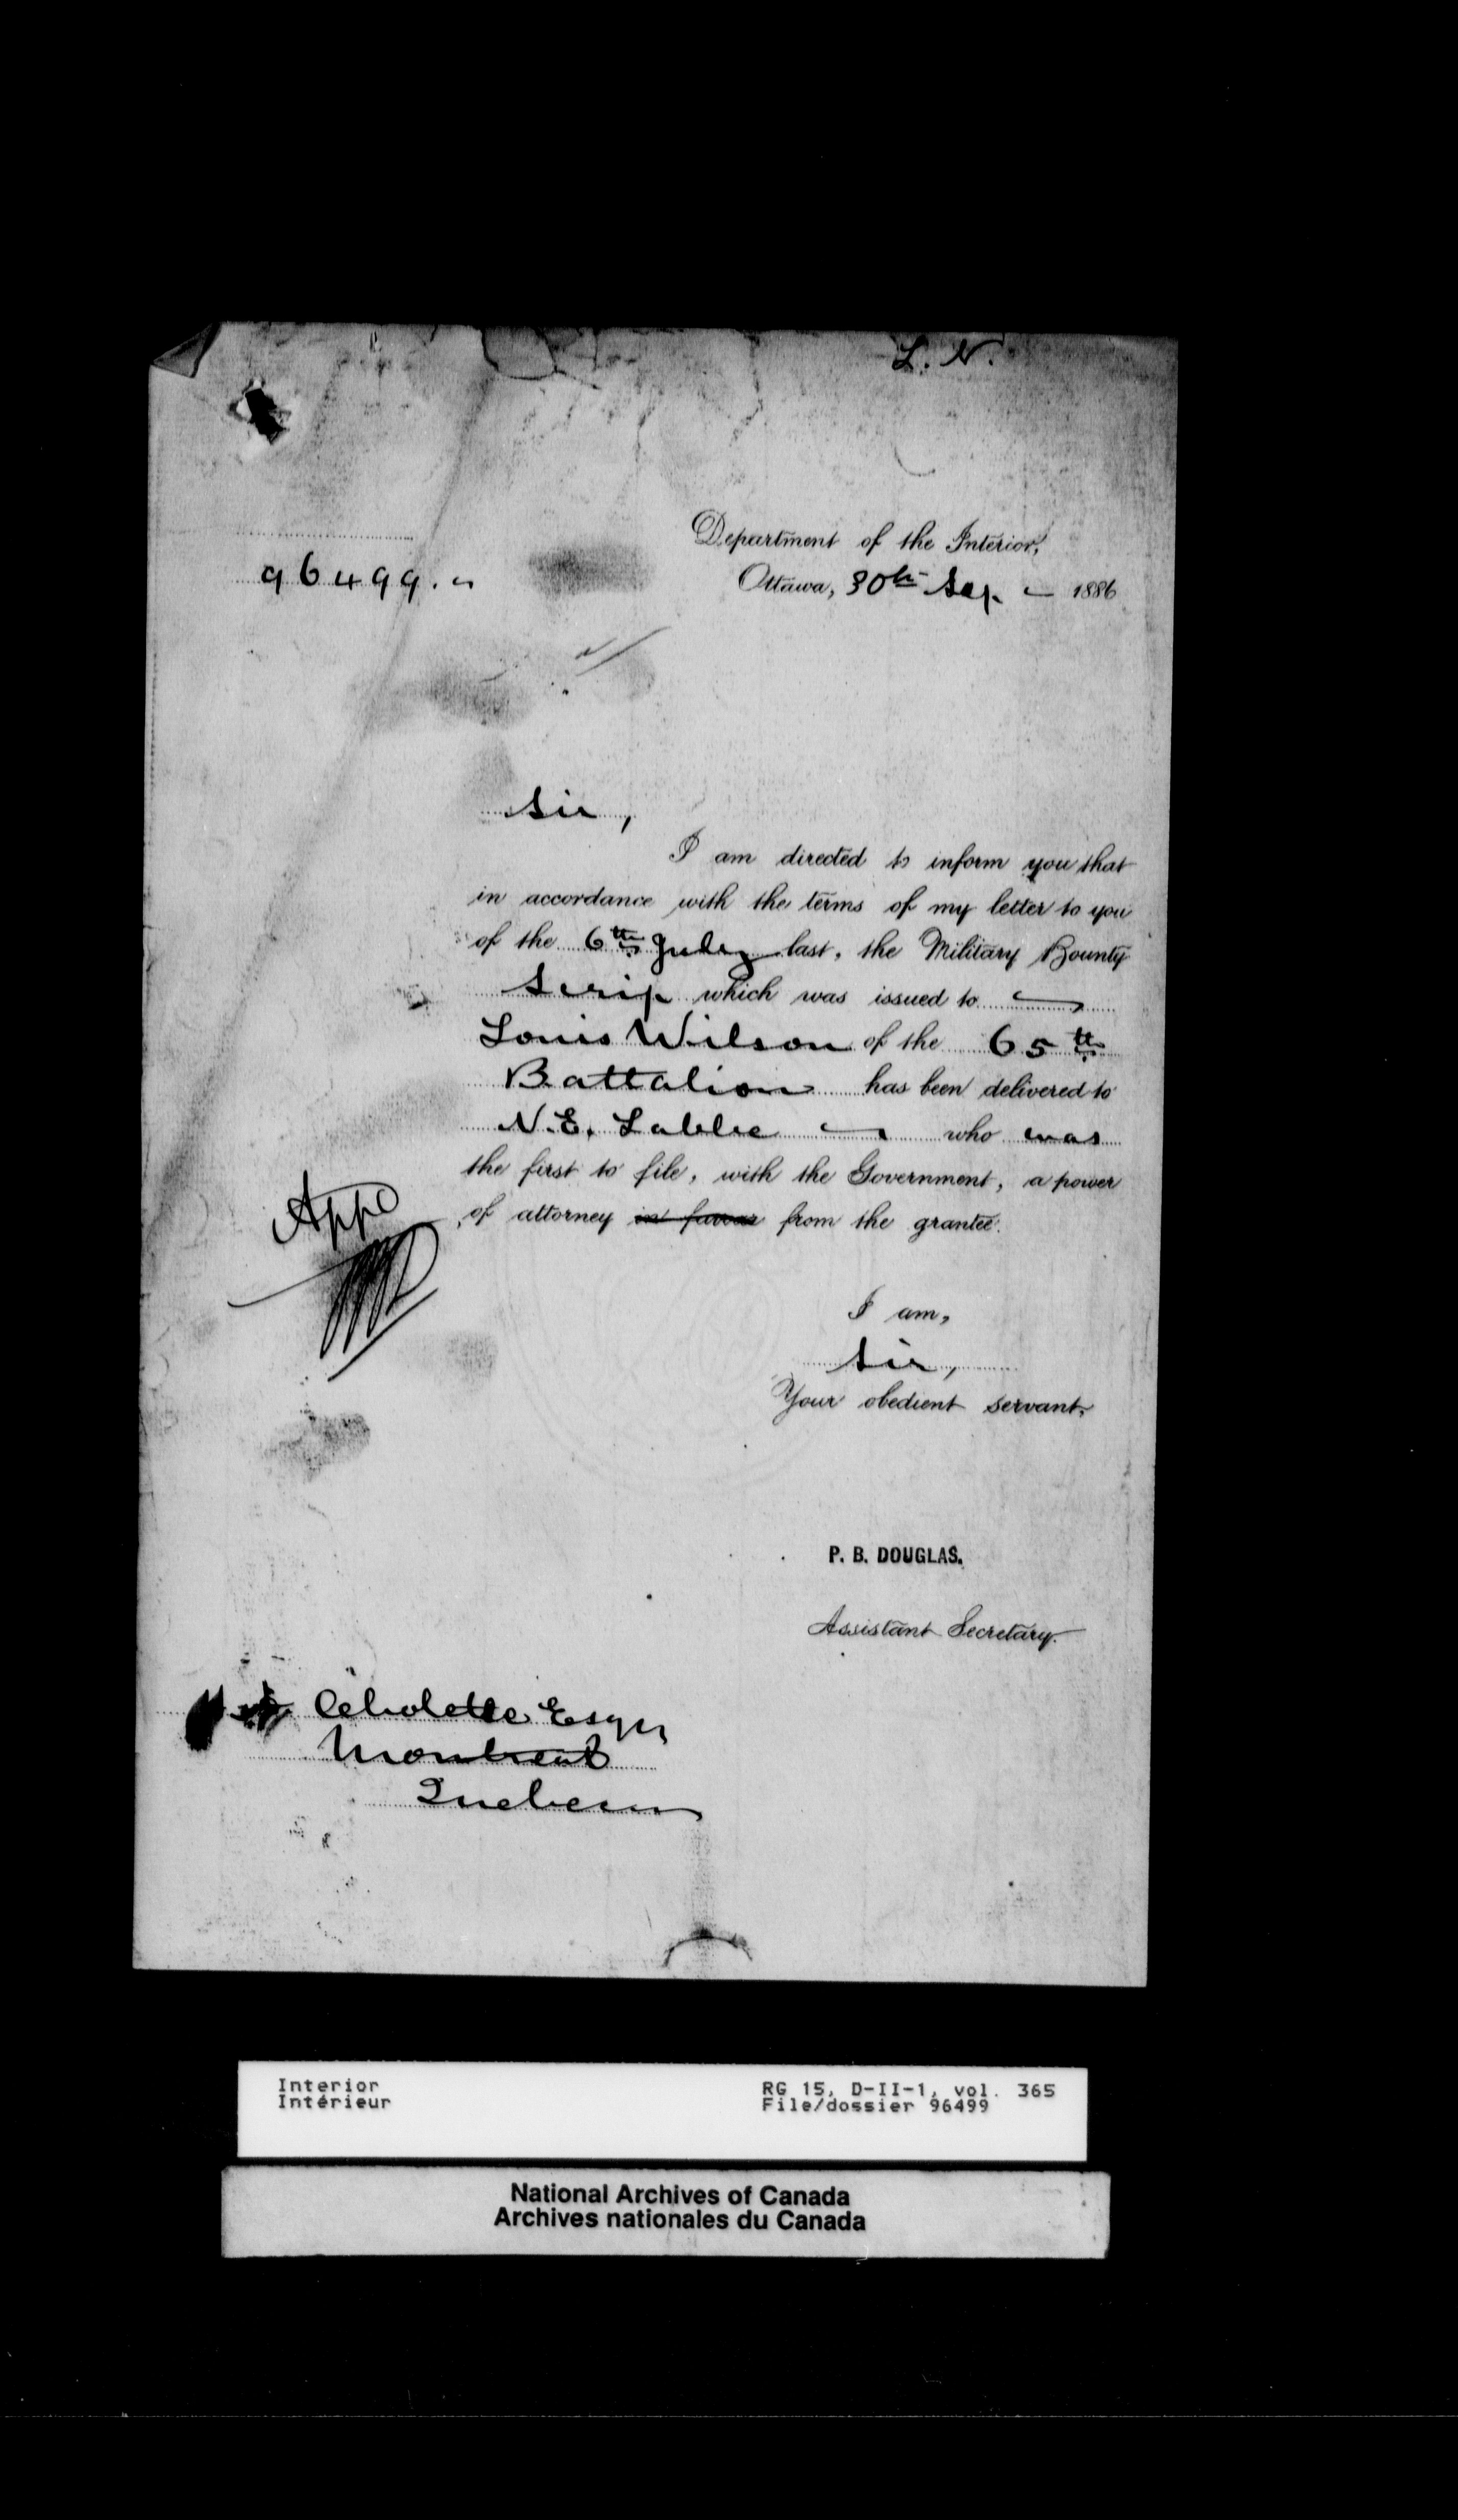 L. N.
Department of the Interior,
96499.
Ottawa, 30th Sep. 1886
Sir,
I am directed to inform you that
in accordance with the terms of my letter to you
of the 6th July last, the Military Bounty
Scrip which was issued to
Louis Wilson of the 65th
Battalion has been delivered to
N.E. Labbe who was
the first to file, with the Government, a power
of attorney in favor from the grantee.
I am,
Sir,
Your obedient servant,
P. B. DOUGLAS.
Assistant Secretary.
Esqr
Montreal
Quebec
Interior
Intérieur
RG 15, D-II-1, vol. 365
File/dossier 96499
National Archives of Canada
Archives nationales du Canada